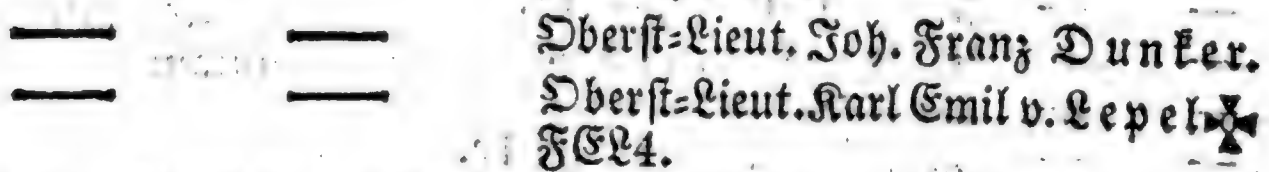 — — Oberst-Lieut. Joh. Franz Dunker.
— — Oberst-Lieut. Karl Emil v. Lepel✠
FEL4.